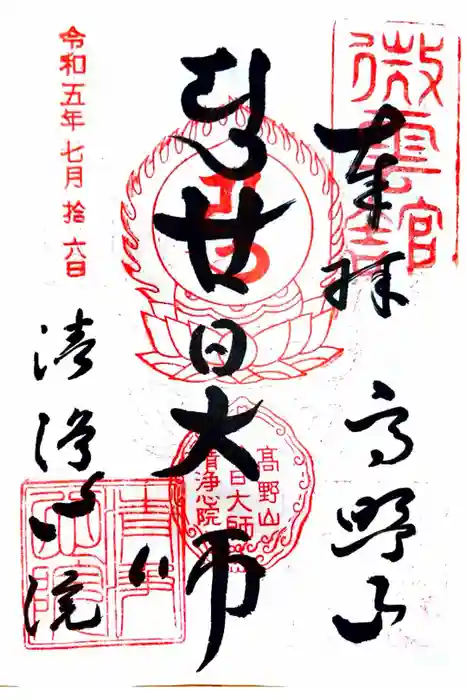 微雲舘
奉拝 高野山
廿日大師
髙野山
廿日大師
清浄心院
令和五年七月拾六日
清浄心院
清浄心院